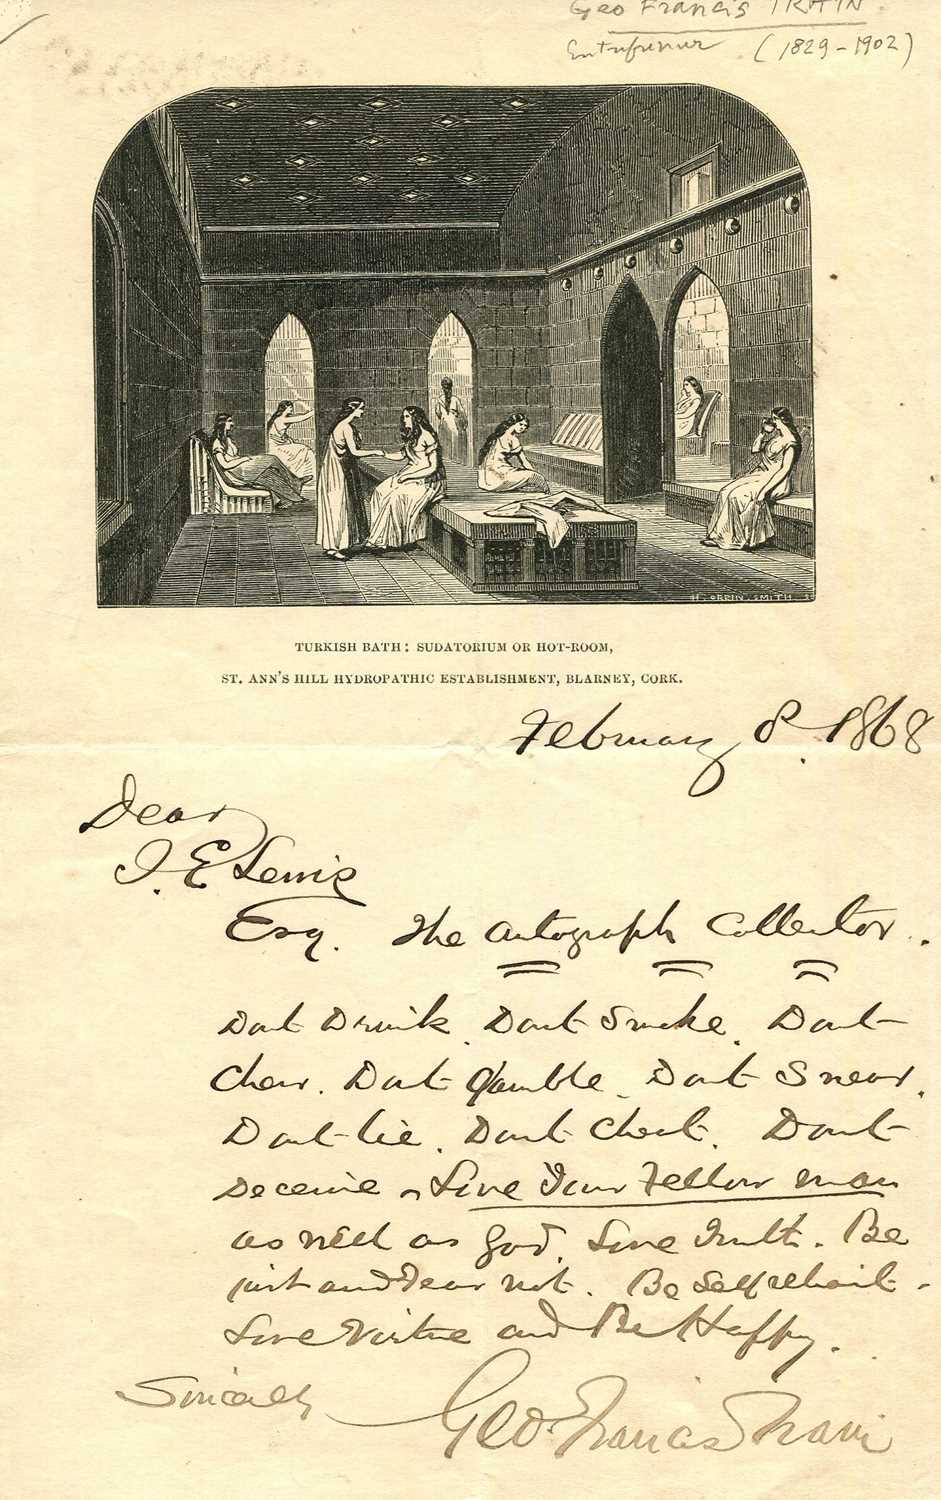 Geo Francis TRAIN
Entrepreneur (1829-1902)
H. ORRIN SMITH SC
TURKISH BATH: SUDATORIUM OR HOT-ROOM,
ST. ANN'S HILL HYDROPATHIC ESTABLISHMENT, BLARNEY, CORK.
February 8. 1868
Dear
J. E. Lewis
Esq. The Autograph Collector.
Dont Drink. Dont Smoke. Dont
Chew. Dont Gamble. Dont Swear.
Dont lie. Dont Cheat. Dont
Deceive. Love Your Fellow man
as well as God. Love Truth. Be
just and Fear not. Be Self reliant.
Love Virtue and Be Happy.
Sincerely Geo. Francis Train